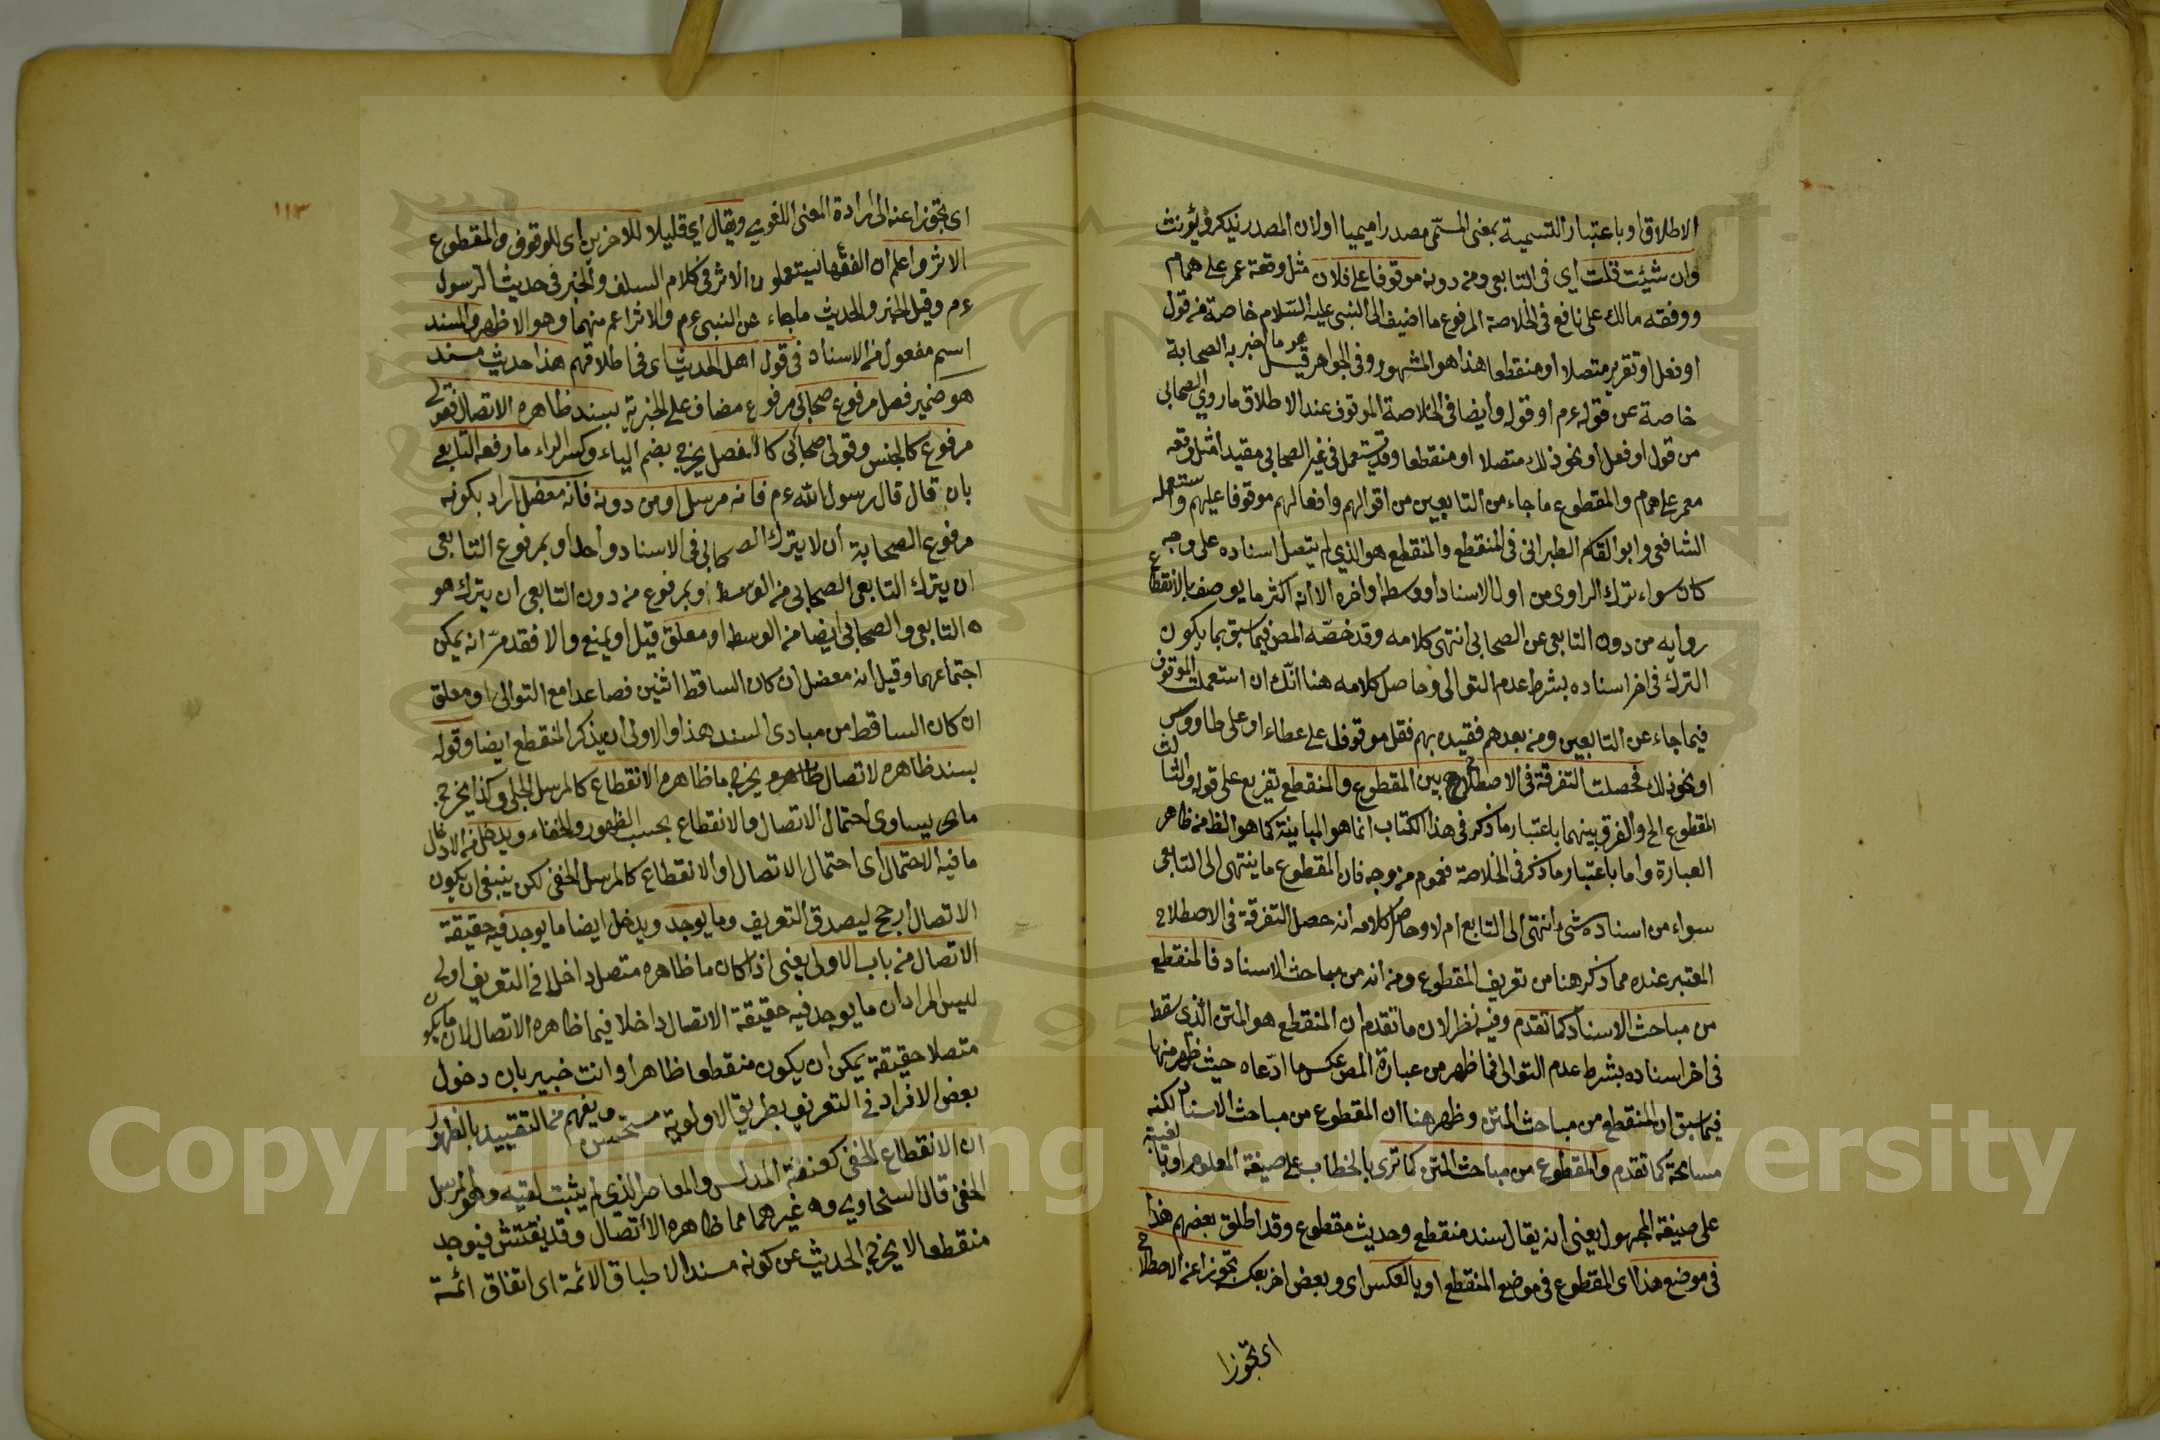 الاطلاق او باعتبار التسمية بمعنى المسمّى مصدرا ميميا اولان المصدر يذكر ويؤنث
وان شيئت قلت أي في التابعي ومن دونه موقوفا على فلان مثل وقفه عمر على همام
ووقفه مالك على نافع في الخلاصة المرفوع ما اضيف الى النبي عليه السّلام خاصة من قول
او فعل او تقرير متصلا او منقطعا هذا هو المشهور وفي الجواهر قيل هو ما اخبر به الصحابة
خاصة عن قوله ءم او قوله وأيضا في الخلاصة الموقوف عند الاطلاق ما روي الصحابي
من قول او فعل او نحو ذلك متصلا او منقطعا وقد يستعمل في غير الصحابي مقيدا مثل وقفه
معمر على همام والمقطوع ما جاء من التابعيين من اقوالهم وافعالهم موقوفا عليهم واستعمله
الشافعي وابو القاسم الطبراني في المنقطع والمنقطع هو الذي لم يتصل اسناده على وجه
كان سواء ترك الراوى من اول الاسناد أو وسطه أو اخره الا انه اكثر ما يوصف بالانقطاع
روايه من دون التابعي عن الصحابي انتهى كلامه وقد خصّه المص فيما سبق بما يكون
الترك في اخر اسناده بشرط عدم التوالى وحاصل كلامه هنا انّك ان استعملت الموقوف
فيما جاء عن التابعين ومن بعدهم فقيده بهم فقل موقوف على عطاء او على طاووس
او نحو ذلك فحصلت التفرقة في الاصطلاح بين المقطوع والمنقطع تفريع على قوله والثالث
المقطوع الخ والفرق بينهما باعتبار ما ذكر في هذا الكتاب انما هو المباينة كما هو الظ من ظاهر
العبارة واما باعتبار ما ذكر في الخلاصة فعموم من وجه فان المقطوع ما ينتهى الى التابعي
سواء من اسناده شئ انتهى الى التابع ام لا وحاصل كلامه انه حصل التفرقة في الاصطلاح
المعتبر عنده مما ذكر هنا من تعريف المقطوع ومن انه من مباحث الاسناد فالمنقطع
من مباحث الاسناد كما تقدم وفيه نظر لان ما تقدم ان المنقطع هو المتن الذي سقط
في اخر اسناده بشرط عدم التوالى فما ظهر من عبارة المص عكس ما ادّعاه حيث ظهر منها
فيما سبق ان المنقطع من مباحث المتن وظهر هنا ان المقطوع من مباحث الاسناد لكنه
مسامحة كما تقدم والمقطوع من مباحث المتن كما ترى بالخطاب على صيغة المعلوم او بالغيبة
على صيغة المجهول يعني انه يقال سند منقطع وحديث مقطوع وقد اطلق بعضهم هذا
في موضع هذا اى المقطوع في موضع المنقطع او بالعكس اى وبعض اخر بعكسه تجوزا عن الاصطلاح
اى تجوزا
١١٣
اى تجوزا عنه الى ارادة المعنى اللغوي ويقال اي قليلا للاخرين اى للموقوف والمقطوع
الاثر واعلم ان الفقهاء يستعملون الاثر في كلام السلف والخبر في حديث الرسول
ءم وقيل الخبر والحديث ما جاء عن النبي ءم والاثر اعم منهما وهو الاظهر والمسند
اسم مفعول من الاسناد في قول اهل الحديث اى في اطلاقهم هذا حديث مسند
هو ضمير فصل مرفوع صحابي مرفوع مضاف على الخبرية بسند ظاهره الاتصال فقولى
مرفوع كالجنس وقولى صحابي كالفصل يخرج بضم الياء وكسر الراء ما رفعه التابعي
بان قال قال رسول الله ءم فانه مرسل او من دونه فانه معضل اراد بكونه
مرفوع الصحابة أن لا يترك الصحابي في الاسناد واحدا وبمرفوع التابعي
ان يترك التابعي الصحابي من الوسط وبمرفوع من دون التابعي ان يترك هو
التابعي والصحابي ايضا من الوسط او معلق قيل او يمنع والا فقد مر انه يمكن
اجتماعهما وقيل انه معضل ان كان الساقط اثنين فصاعدا مع التوالى او معلق
ان كان الساقط من مبادى السند هذا والاولى ان يذكر المنقطع ايضا وقوله
بسند ظاهره لاتصال ظاهره يخرج ما ظاهره الانقطاع كالمرسل الجلى وكذا يخرج
ما يساوى احتمال الاتصال والانقطاع بحسب الظهور والخفاء ويدخل من الاول
ما فيه الاحتمال اى احتمال الاتصال او الانقطاع كالمرسل الخفى لكن ينبغي ان يكون
الاتصال أرجح ليصدق التعريف وما يوجد ويدخل ايضا ما يوجد فيه حقيقة
الاتصال من باب الاولى يعني اذا كان ما ظاهره متصل داخلا في التعريف اولى
ليس المراد ان ما يوجد فيه حقيقة الاتصال داخلا فيما ظاهره الاتصال لان ما يكون
متصلا حقيقة يمكن ان يكون منقطعا ظاهرا وانت خبير بان دخول
بعض الافراد في التعريف بطريق الاولوية مستحسن ويفهم من التقييد بالظهور
ان الانقطاع الخفى كعنعنة المدلس والمعاصر الذي لم يثبت لقيه وهو المرسل
الخفي قال السخاوي وه غيرهما مما ظاهره الاتصال وقد يفتش فيوجد
منقطعا لا يخرج الحديث عن كونه مسندا لاطباق الائمة اى اتفاق ائمة
Copyright © King Saud University
1957